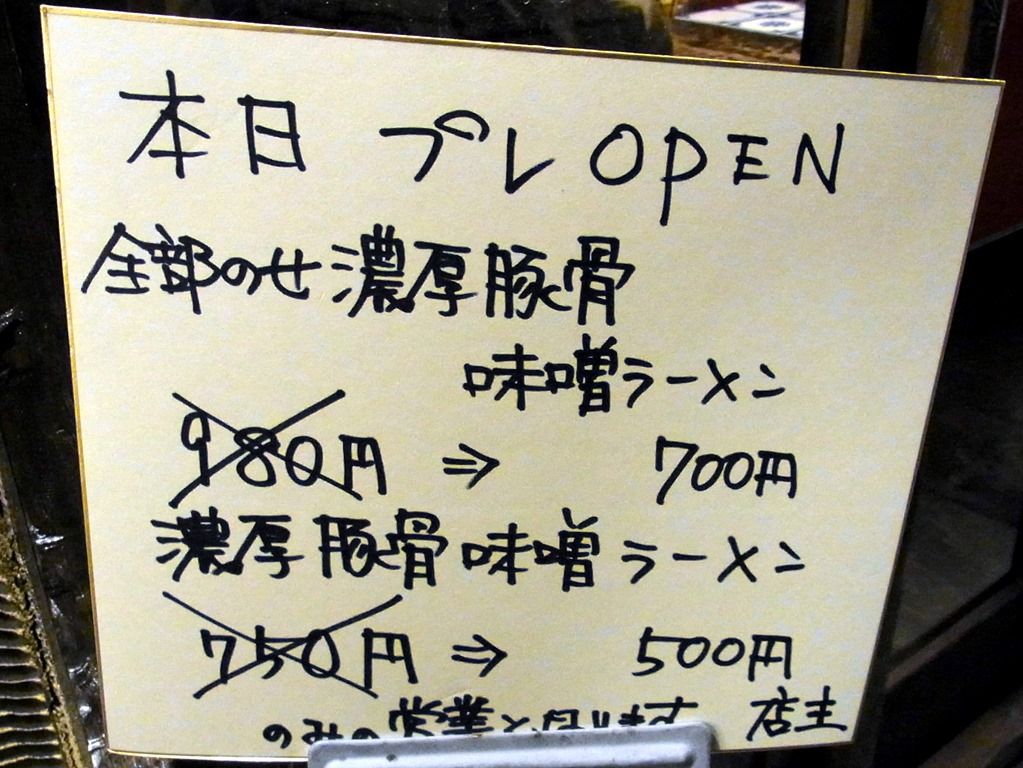 本日 プレ OPEN
全部のせ濃厚豚骨
味噌ラーメン
980円 ⇒ 700円
濃厚豚骨味噌ラーメン
750円 ⇒ 500円
のみの営業となります 店主